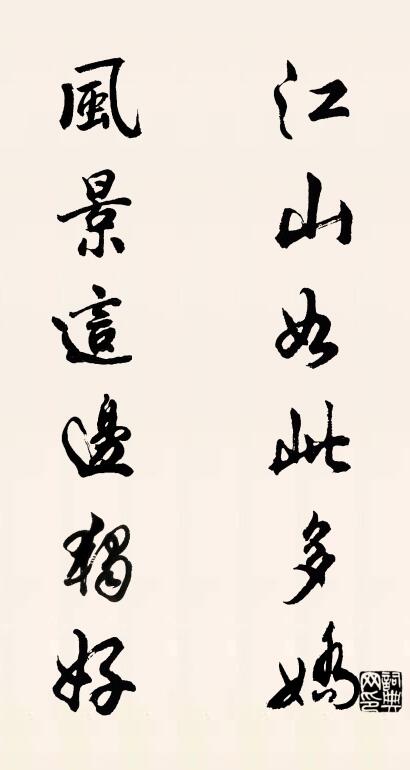 江山如此多嬌
風景這邊獨好
詞典网印